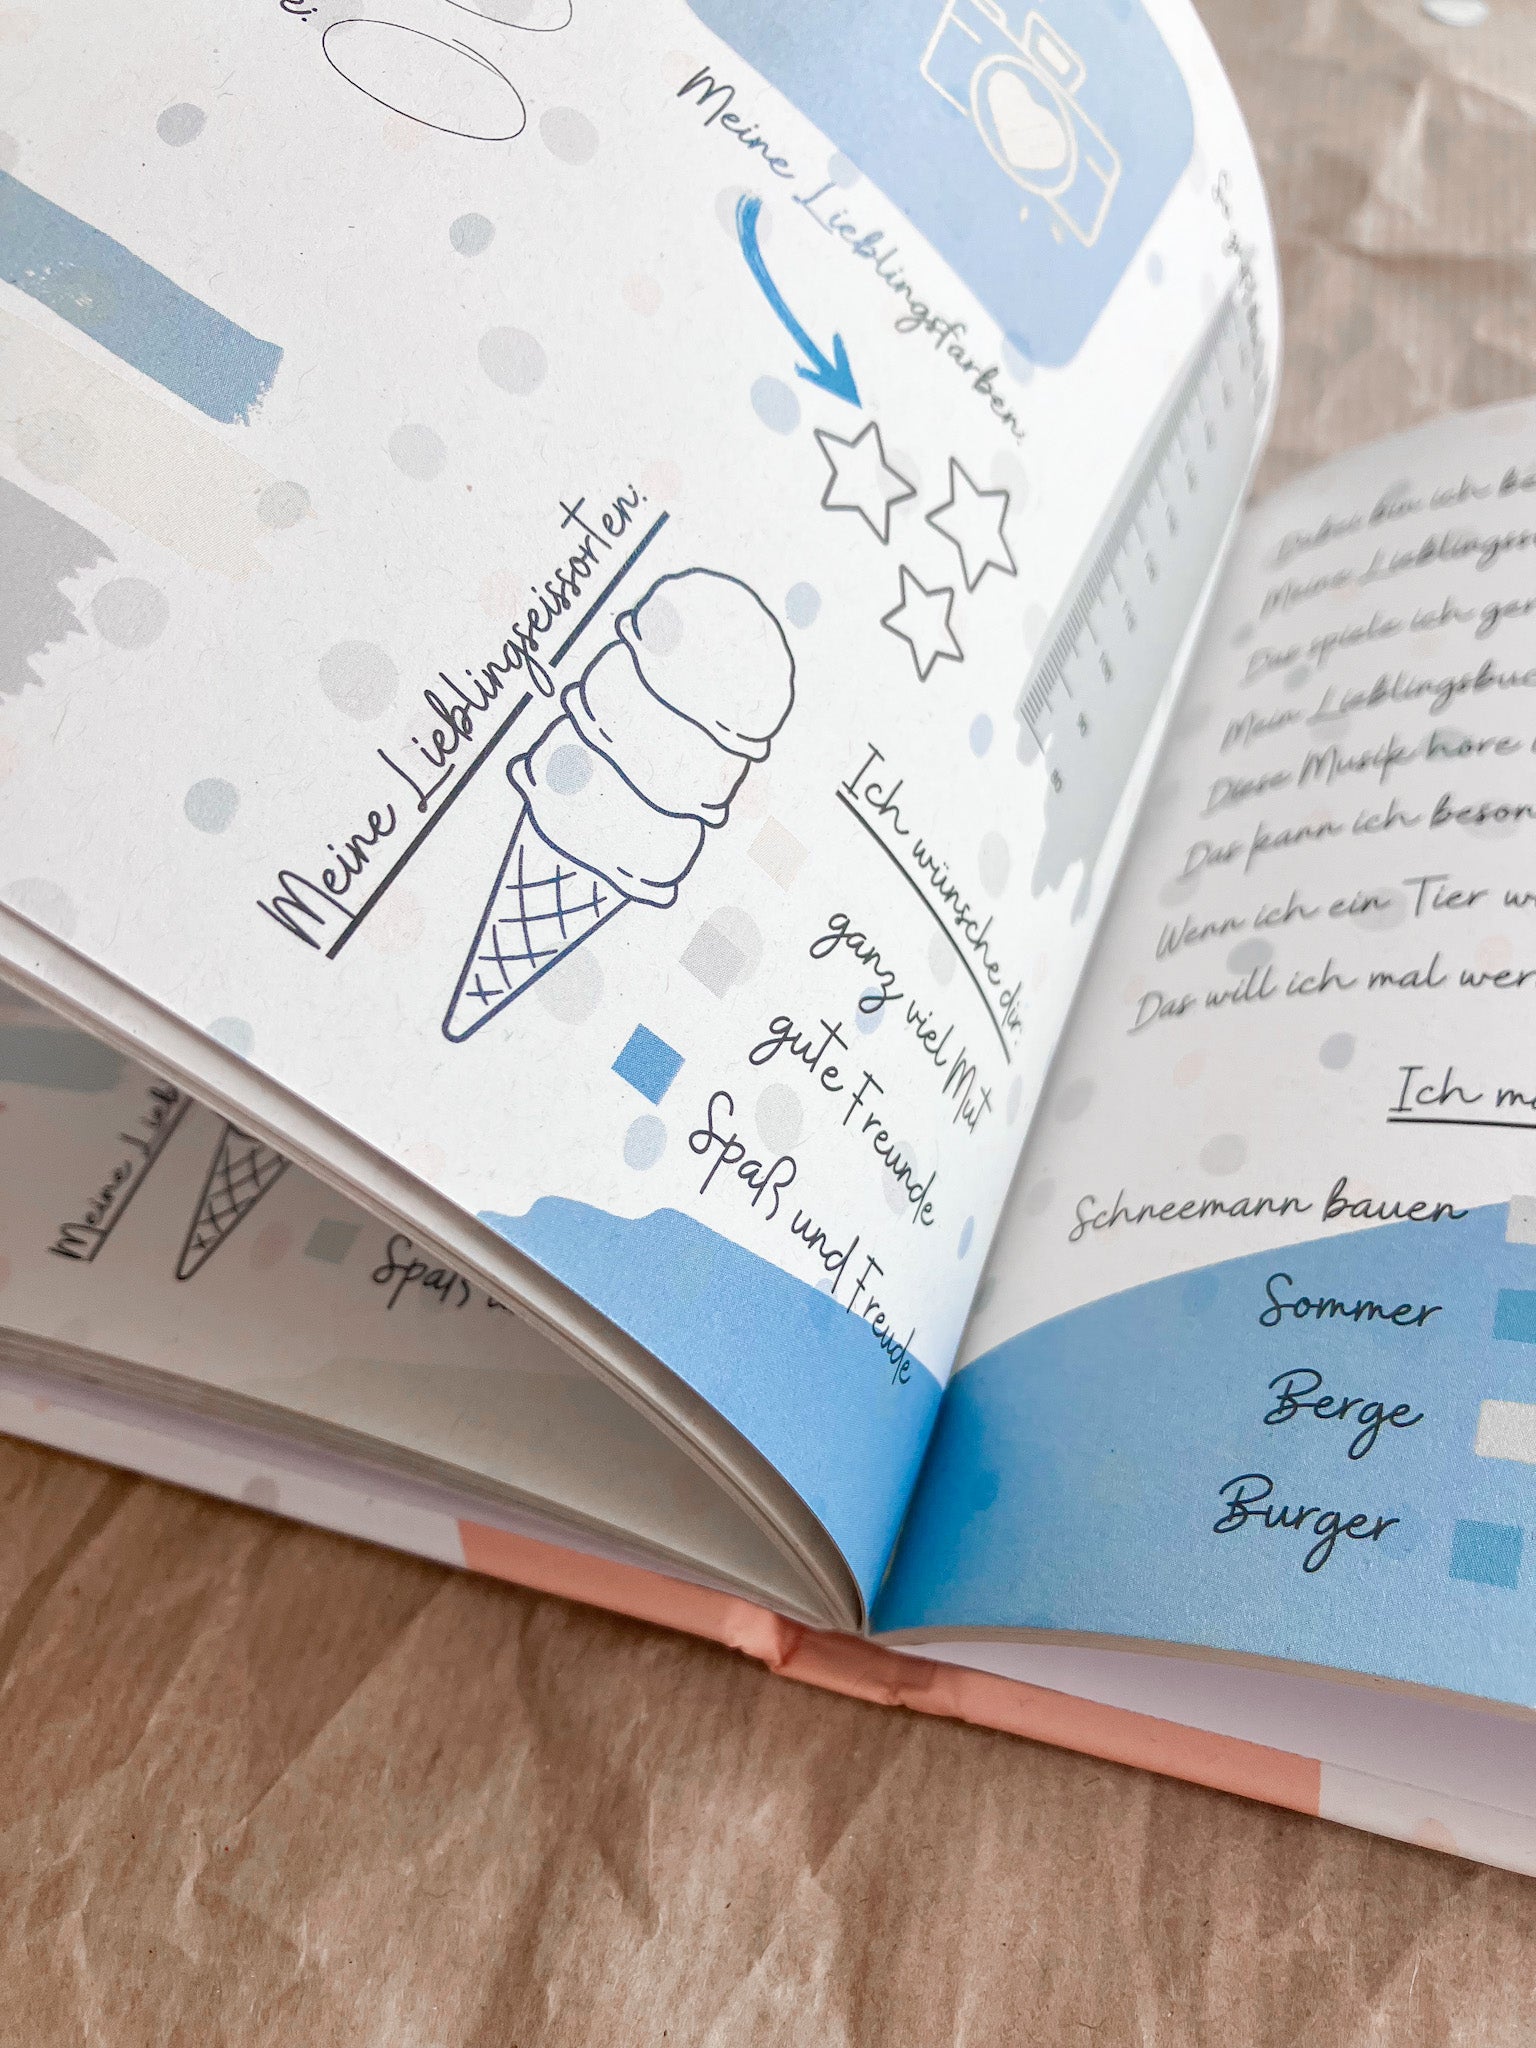 Meine Lieblingsfarben:
Meine Lieblingseissorten:
Ich wünsche dir:
ganz viel Mut
gute Freunde
Spaß und Freude
Meine Lieb
Spaß u
Dabei bin ich be
Meine Lieblingss
Das spiele ich ger
Mein Lieblingsbuc
Diese Musik höre
Das kann ich beson
Wenn ich ein Tier w
Das will ich mal wer
Ich m
Schneemann bauen
Sommer
Berge
Burger